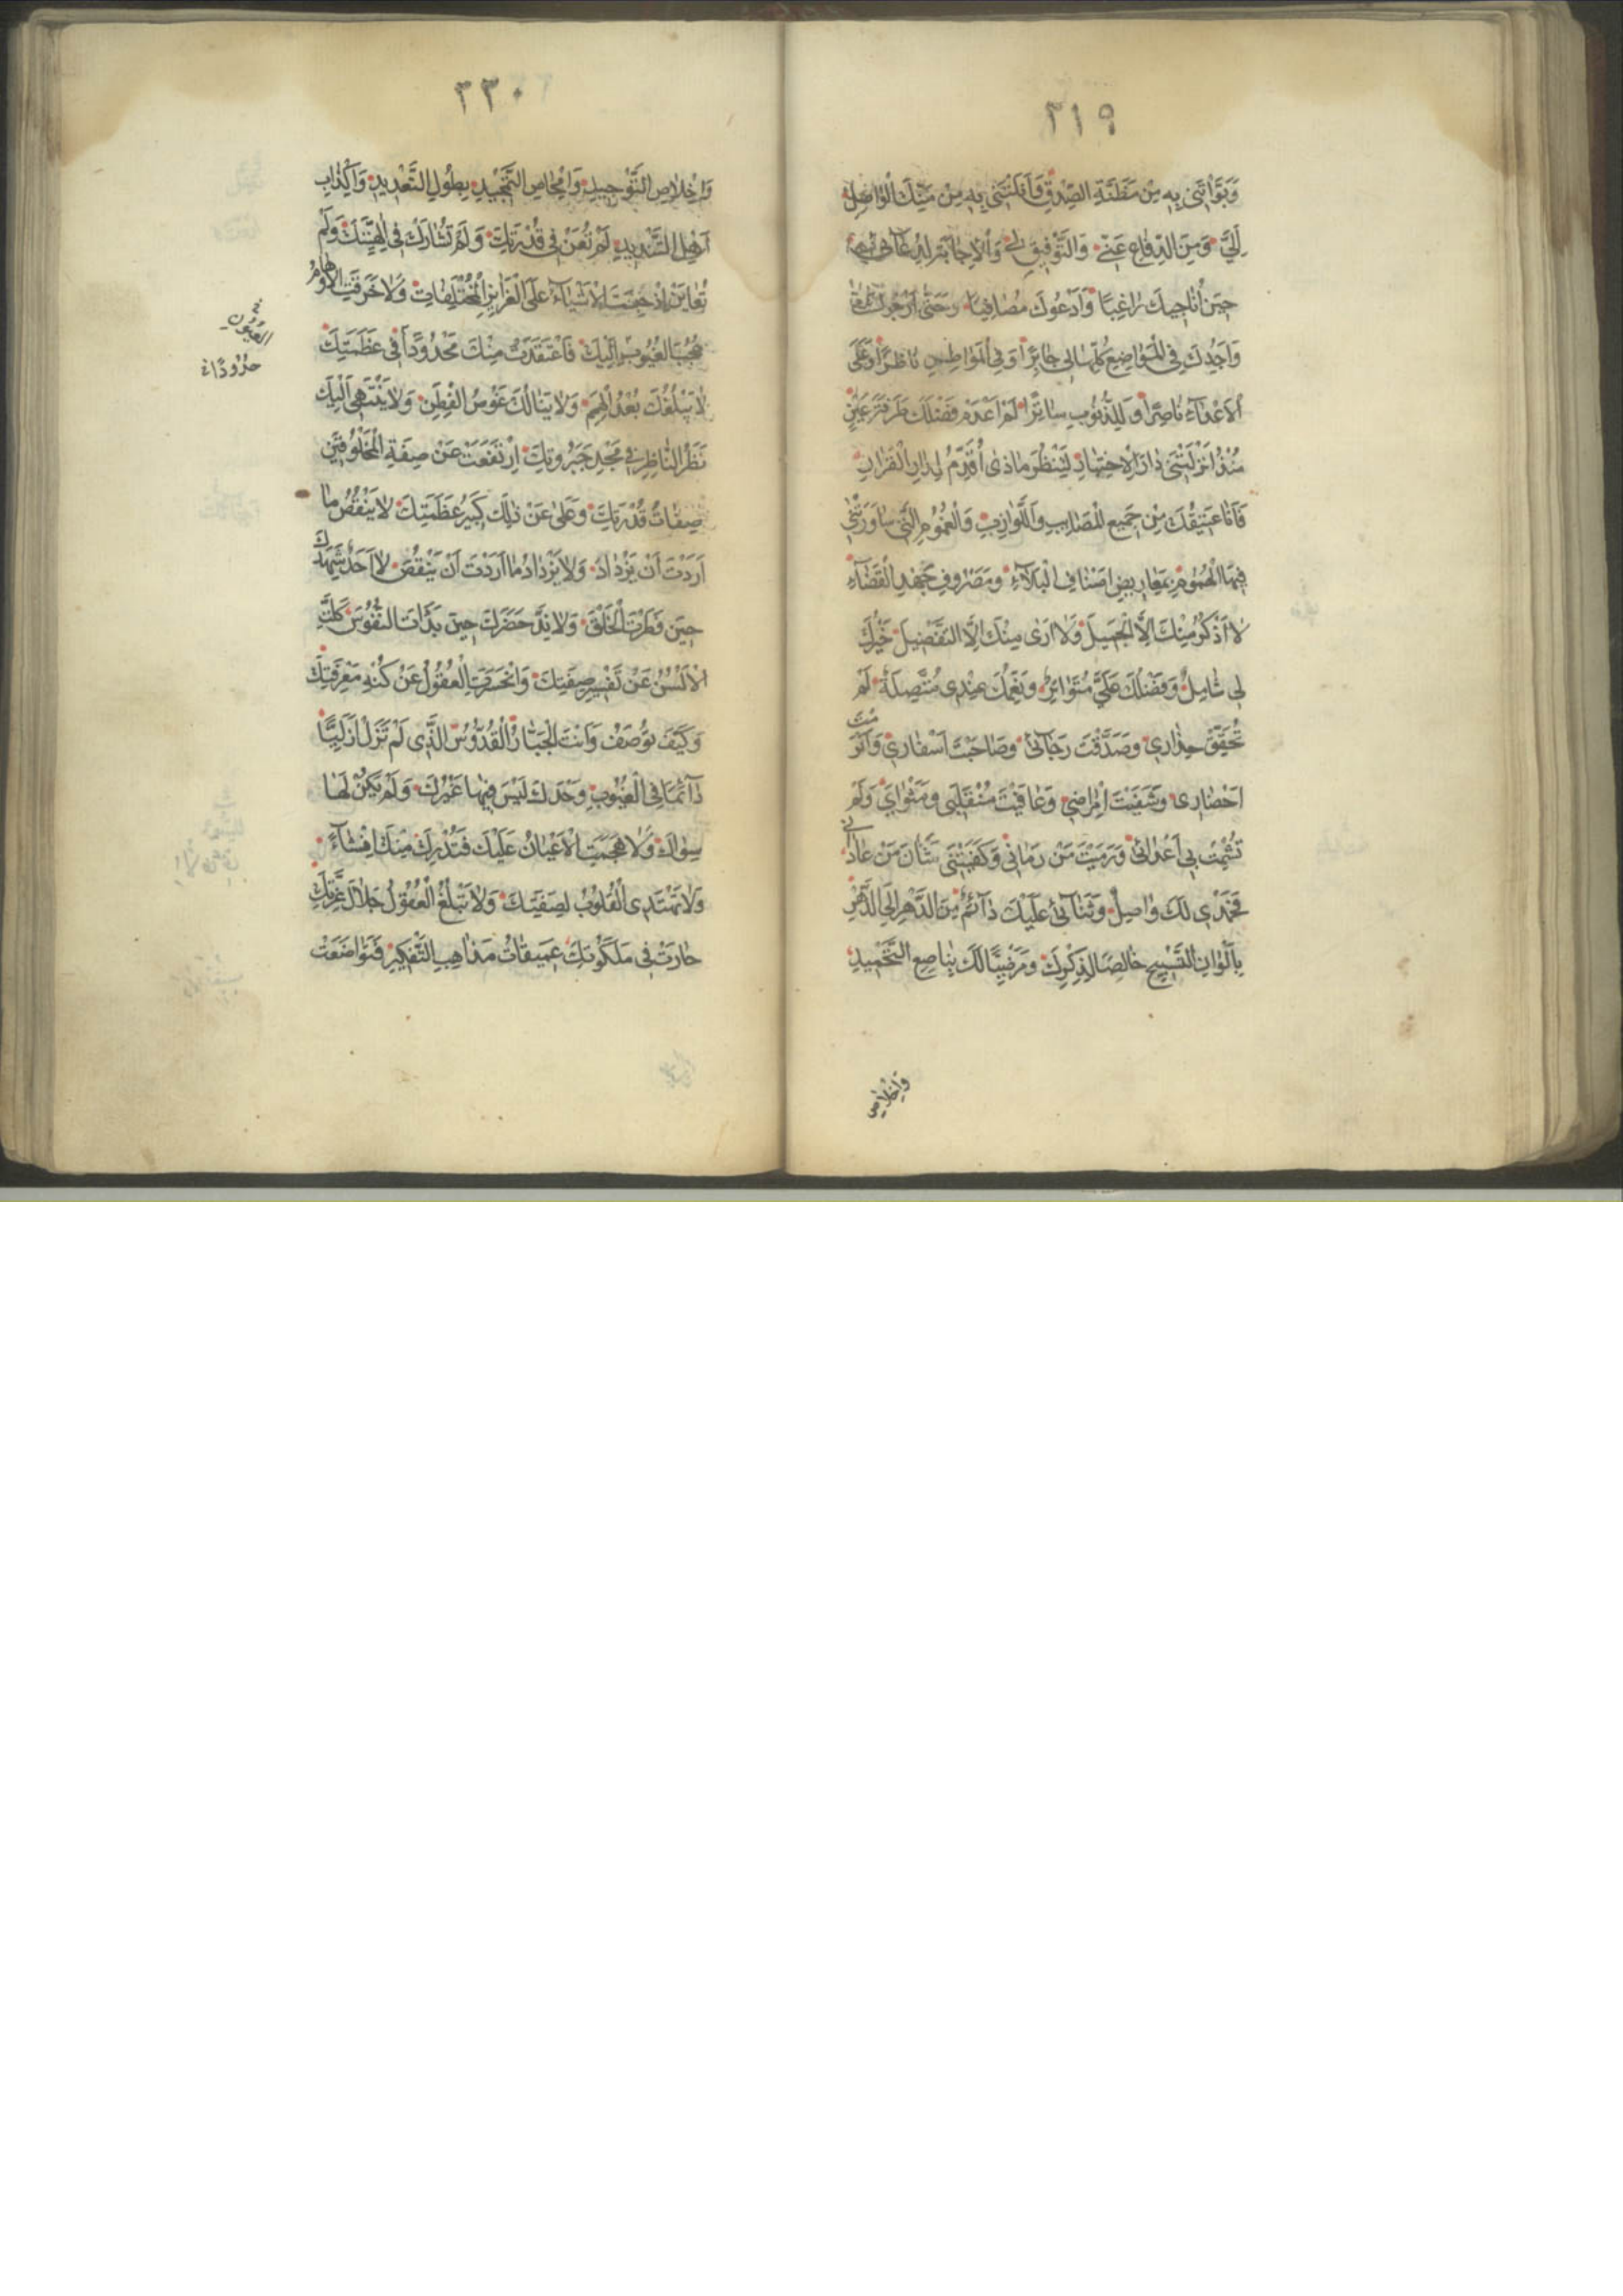 ٣١٩
وَبَوَّأْتَنِي بِهِ مِنْ مَظَنَّةِ الصِّدْقِ وَأَنَلْتَنِي بِهِ مِنْ مِنَنِكَ الْوَاصِلَةِ
إِلَيَّ وَمِنَ الدِّفَاعِ عَنِّي وَالتَّوْفِيقِ لِي وَالْإِجَابَةِ لِدُعَائِي
حِينَ أُنَاجِيكَ رَاغِبًا وَأَدْعُوكَ مُصَافِيًا وَحَتَّى أَرْجُوكَ
وَأَجِدُكَ فِي الْمَوَاضِعِ كُلِّهَا لِي جَابِرًا وَفِي الْمَوَاطِنِ نَاظِرًا وَعَلَى
الْأَعْدَاءِ نَاصِرًا وَلِلذُّنُوبِ سَاتِرًا لَمْ أَعْدَمْ فَضْلَكَ طَرْفَةَ عَيْنٍ
مُنْذُ أَنْزَلْتَنِي دَارَ الْإِخْتِبَارِ لِتَنْظُرَ مَاذَى أُقَدِّمُ لِدَارِ الْقَرَارِ
فَأَنَا عَتِيقُكَ مِنْ جَمِيعِ الْمَصَائِبِ وَاللَّوَازِبِ وَالْغُمُومِ الَّتِي سَاوَرَتْنِي
فِيهَا الْهُمُومُ بِمَعَارِيضِ أَصْنَافِ الْبَلَاءِ وَمَصْرُوفِ جُهْدِ الْقَضَاءِ
لَا أَذْكُرُ مِنْكَ إِلَّا الْجَمِيلَ وَلَا أَرَى مِنْكَ إِلَّا التَّفْضِيلَ خَيْرُكَ
لِي شَامِلٌ وَفَضْلُكَ عَلَيَّ مُتَوَاتِرٌ وَنِعَمُكَ عِنْدِي مُتَّصِلَةٌ لَمْ
تُحَقِّقْ حِذَارِي وَصَدَّقْتَ رَجَائِي وَصَاحَبْتَ أَسْفَارِي وَأَكْرَمْتَ
أَحْضَارِي وَشَفَيْتَ أَمْرَاضِي وَعَافَيْتَ مُنْقَلَبِي وَمَثْوَايَ وَلَمْ
تُشْمِتْ بِي أَعْدَائِي وَرَمَيْتَ مَنْ رَمَانِي وَكَفَيْتَنِي شَنَآنَ مَنْ عَادَانِي
فَحَمْدِي لَكَ وَاصِلٌ وَثَنَائِي عَلَيْكَ دَائِمٌ مِنَ الدَّهْرِ إِلَى الدَّهْرِ
بِأَلْوَانِ التَّسْبِيحِ خَالِصًا لِذِكْرِكَ وَمَرْضِيًّا لَكَ بِنَاصِعِ التَّحْمِيدِ
وَإِخْلَاصِ
٣٣٠
وَإِخْلَاصِ التَّوْحِيدِ وَإِمْحَاضِ التَّمْجِيدِ بِطُولِ التَّعْدِيدِ وَإِكْذَابِ
أَهْلِ التَّنْدِيدِ لَمْ تُعَنْ فِي قُدْرَتِكَ وَلَمْ تُشَارَكْ فِي إِلَهِيَّتِكَ وَلَمْ
تُعَايَنْ إِذْ حُبِسَتِ الْأَشْيَاءُ عَلَى الْغَرَائِزِ الْمُخْتَلِفَاتِ وَلَا خَرَقَتِ الْأَوْهَامُ
حُجُبَ الْغُيُوبِ إِلَيْكَ فَاعْتَقَدَتْ مِنْكَ مَحْدُودًا فِي عَظَمَتِكَ
لَا يَبْلُغُكَ بُعْدُ الْهِمَمِ وَلَا يَنَالُكَ غَوْصُ الْفِطَنِ وَلَا يَنْتَهِي إِلَيْكَ
نَظَرُ النَّاظِرِ فِي مَجْدِ جَبَرُوتِكَ ارْتَفَعَتْ عَنْ صِفَةِ الْمَخْلُوقِينَ
صِفَاتُ قُدْرَتِكَ وَعَلَى عَنْ ذَلِكَ كَبِيرُ عَظَمَتِكَ لَا يَنْقُصُ مَا
أَرَدْتَ أَنْ يَزْدَادَ وَلَا يَزْدَادُ مَا أَرَدْتَ أَنْ يَنْقُصَ لَا أَحَدٌ شَهِدَكَ
حِينَ فَطَرْتَ الْخَلْقَ وَلَا نِدٌّ حَضَرَكَ حِينَ بَدَأْتَ النُّفُوسَ كَلَّتِ
الْأَلْسُنُ عَنْ تَفْسِيرِ صِفَتِكَ وَانْحَسَرَتِ الْعُقُولُ عَنْ كُنْهِ مَعْرِفَتِكَ
وَكَيْفَ تُوصَفُ وَأَنْتَ الْجَبَّارُ الْقُدُّوسُ الَّذِي لَمْ تَزَلْ أَزَلِيًّا
دَائِمًا فِي الْغُيُوبِ وَحْدَكَ لَيْسَ فِيهَا غَيْرُكَ وَلَمْ يَكُنْ لَهَا
سِوَاكَ وَلَا هَجَمَتِ الْأَعْيَانُ عَلَيْكَ فَتُدْرِكَ مِنْكَ إِنْشَاءً
وَلَا تَهْتَدِي الْقُلُوبُ لِصِفَتِكَ وَلَا تَبْلُغُ الْعُقُولُ جَلَالَ عِزَّتِكَ
حَارَتْ فِي مَلَكُوتِكَ عَمِيقَاتُ مَذَاهِبِ التَّفْكِيرِ فَتَوَاضَعَتْ
الْعُيُونِ
حُدُودًا